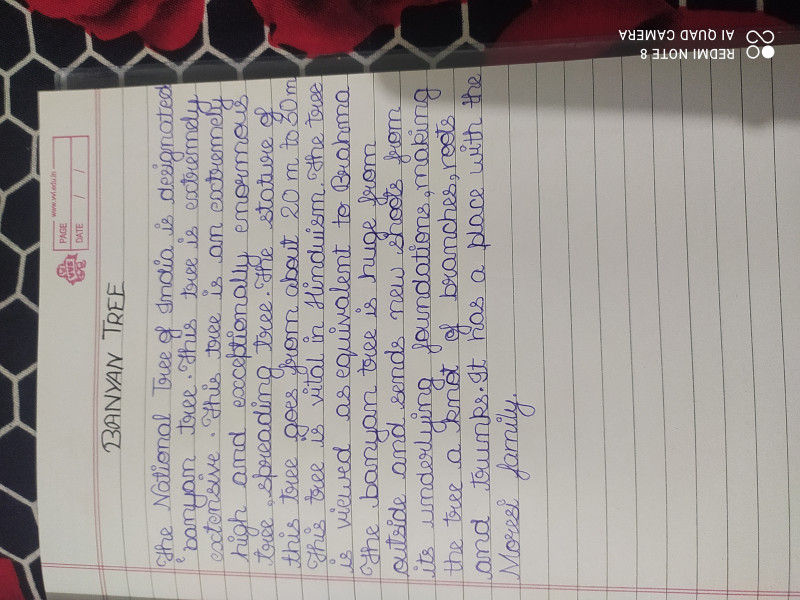 www.vvi.edu.in
PAGE
DATE / /
BANYAN TREE
The National Tree of India is designated
banyan tree. This tree is extremely
extensive. This tree is an extremely
high and exceptionally enormous
tree, spreading tree. The stature of
this tree goes from about 20 m to 30m
This tree is vital in Hinduism. The tree
is viewed as equivalent to Brahma
The banyan tree is huge from
outside and sends new shoots from
its underlying foundations, making
the tree a knot of branches, roots
and trunks. It has a place with the
Moresi family.
REDMI NOTE 8
AI QUAD CAMERA